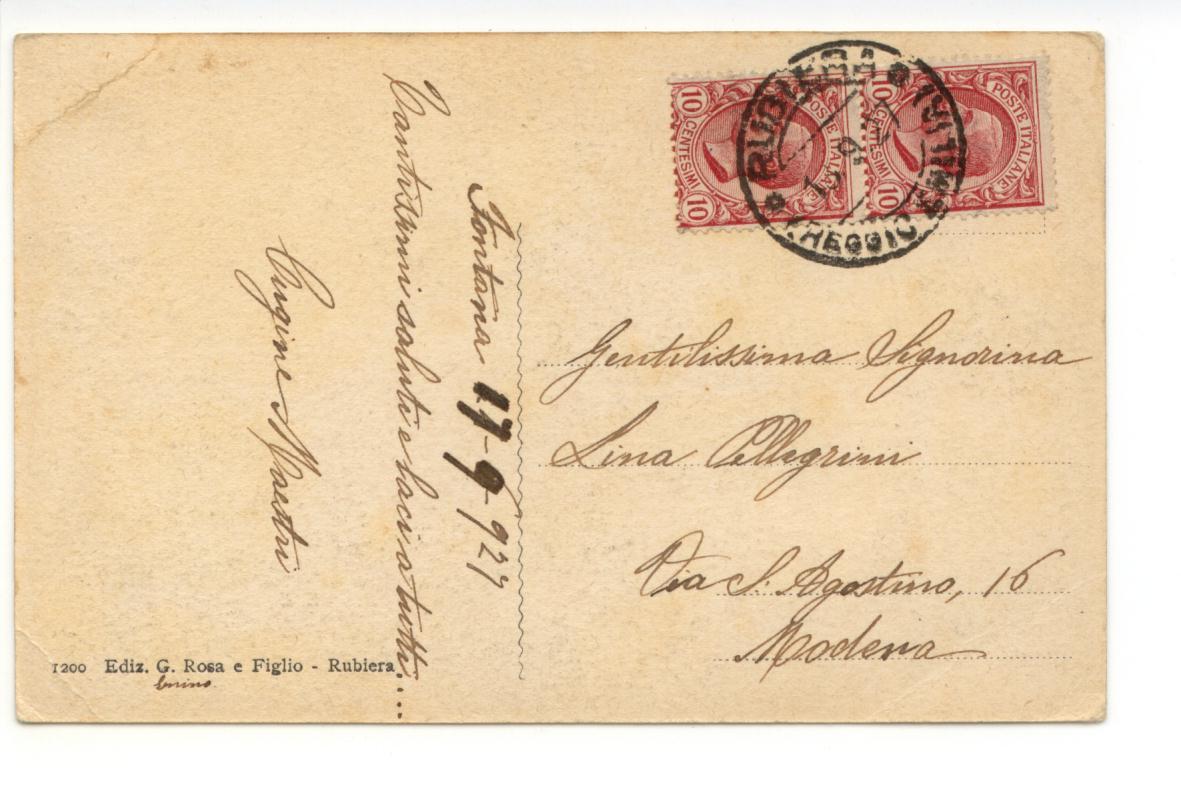 Fontana 17-9-927
Tantissimi saluti e baci a tutti....
Cugine Maestri
Gentilissima Signorina
Lina Pellegrini
Via S. Agostino, 16
Modena
1200 Ediz. G. Rosa e Figlio - Rubiera
10 CENTESIMI 10
POSTE ITALIANE
10 CENTESIMI 10
POSTE ITALIANE
RUBIERA
REGGIO